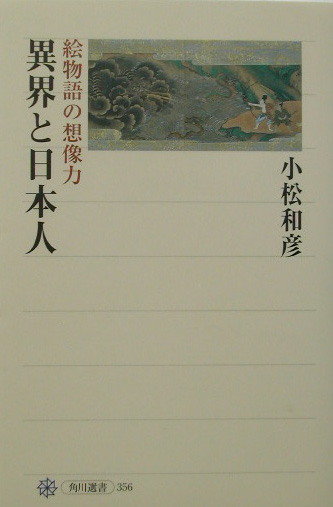 絵物語の想像力
異界と日本人
小松和彦
角川選書 356